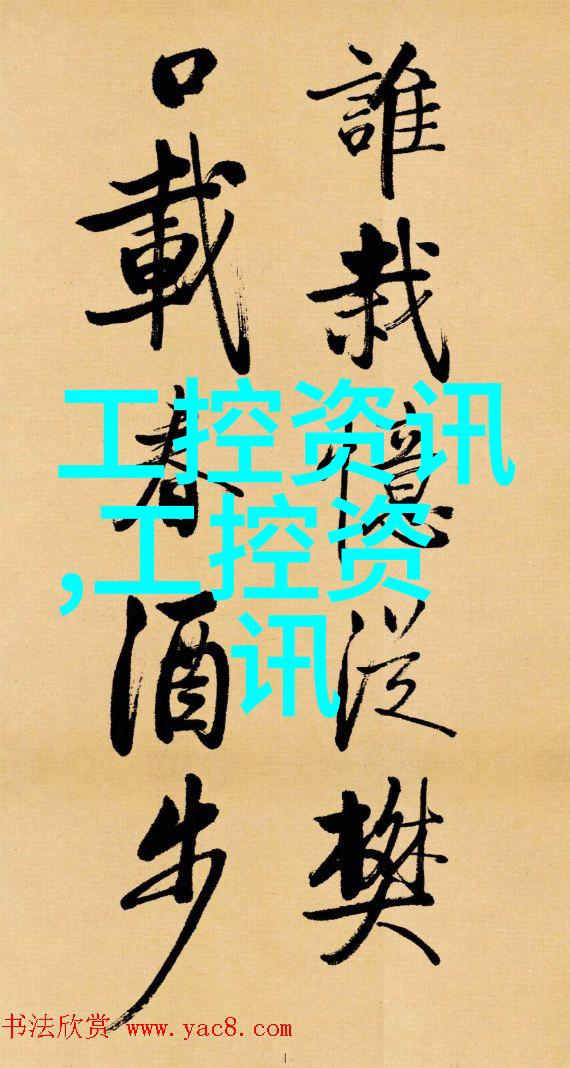 誰栽憶從樊
口載春酒步
工控资讯
,工控资
讯
书法欣赏 www.yac8.com